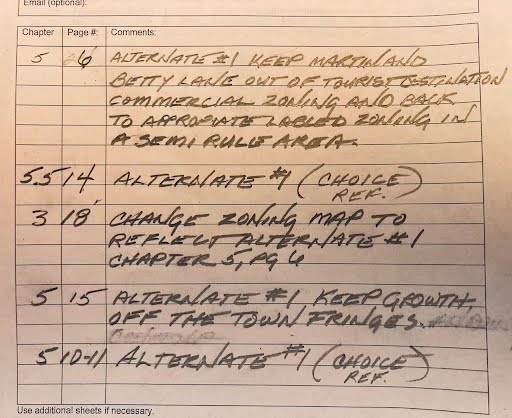 Email (optional):
Chapter Page #: Comments:
5 6 ALTERNATE #1 KEEP MARTIN AND
BETTY LANE OUT OF TOURIST DESTINATION
COMMERCIAL ZONING AND BACK
TO APPROPIATE LABLED ZONING IN
A SEMI RULE AREA.
5.5 14 ALTERNATE #1 (CHOICE
REF.)
3 18 CHANGE ZONING MAP TO
REFLECT ALTERNATE #1
CHAPTER 5, PG 6
5 15 ALTERNATE #1, KEEP GROWTH
OFF THE TOWN FRINGES.
5 10-11 ALTERNATE #1 (CHOICE
REF.)
Use additional sheets if necessary.